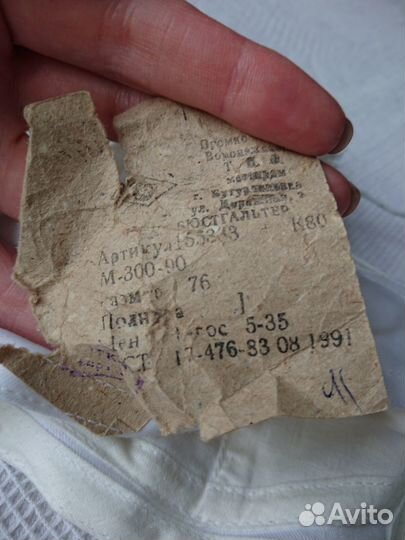 Промко
Воронежско
г. Бутурлиновка
ул. Дорожная, 2
БЮСТГАЛЬТЕР
Артикул 155343 К80
М-300-90
разм 76
Полнота 1
Цен 1-гос 5-35
СТ 17-476-83 08 1991
Avito